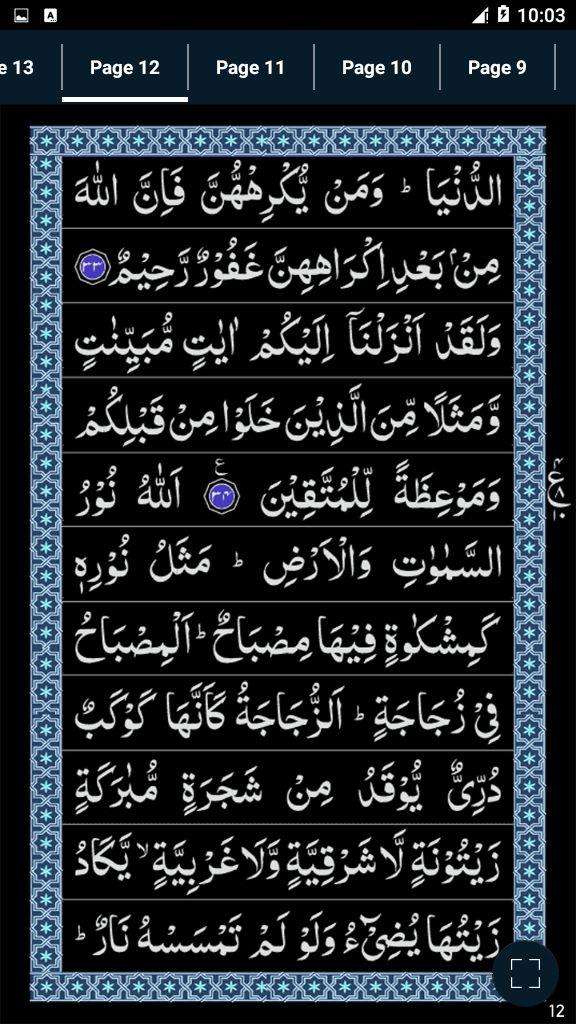 10:03
e 13
Page 12
Page 11
Page 10
Page 9
الدُّنْيَا ؕ وَمَنْ يُّكْرِهْهُّنَّ فَاِنَّ اللّٰهَ
مِنْۢ بَعْدِ اِكْرَاهِهِنَّ غَفُوْرٌ رَّحِيْمٌ ۳۳
وَلَقَدْ اَنْزَلْنَاۤ اِلَيْكُمْ اٰيٰتٍ مُّبَيِّنٰتٍ
وَّمَثَلًا مِّنَ الَّذِيْنَ خَلَوْا مِنْ قَبْلِكُمْ
وَمَوْعِظَةً لِّلْمُتَّقِيْنَ ۳۴ ع اَللّٰهُ نُوْرُ
السَّمٰوٰتِ وَالْاَرْضِ ؕ مَثَلُ نُوْرِهٖ
كَمِشْكٰوةٍ فِيْهَا مِصْبَاحٌ ؕ اَلْمِصْبَاحُ
فِيْ زُجَاجَةٍ ؕ اَلزُّجَاجَةُ كَاَنَّهَا كَوْكَبٌ
دُرِّيٌّ يُّوْقَدُ مِنْ شَجَرَةٍ مُّبٰرَكَةٍ
زَيْتُوْنَةٍ لَّا شَرْقِيَّةٍ وَّلَا غَرْبِيَّةٍ ۙ يَّكَادُ
زَيْتُهَا يُضِيْٓءُ وَلَوْ لَمْ تَمْسَسْهُ نَارٌ ؕ
12